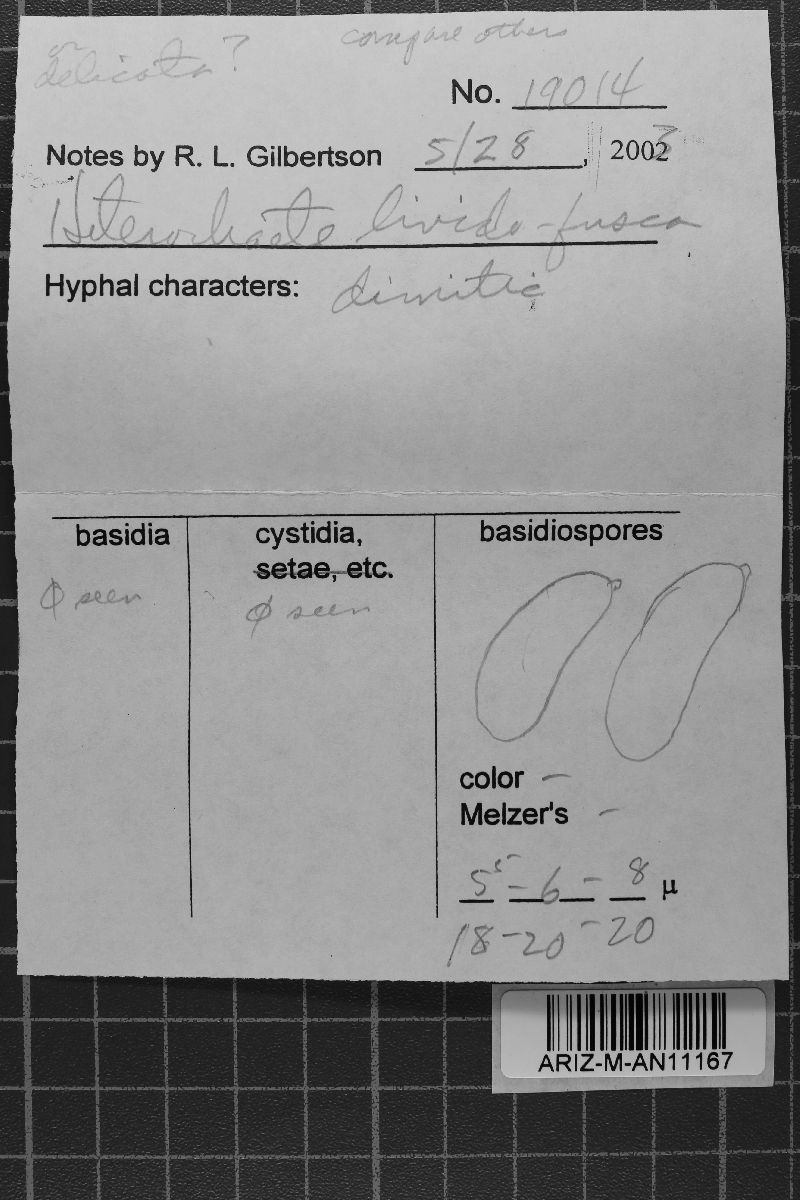 or
delicata?
compare others
No. 19014
Notes by R. L. Gilbertson 5/28, 2003
Heterochaete livido-fusca
Hyphal characters: dimitic
basidia
cystidia,
setae, etc.
basidiospores
Φ seen
Φ seen
color –
Melzer's –
5⁵ – 6 – 8 µ
18 – 20 – 20
ARIZ-M-AN11167